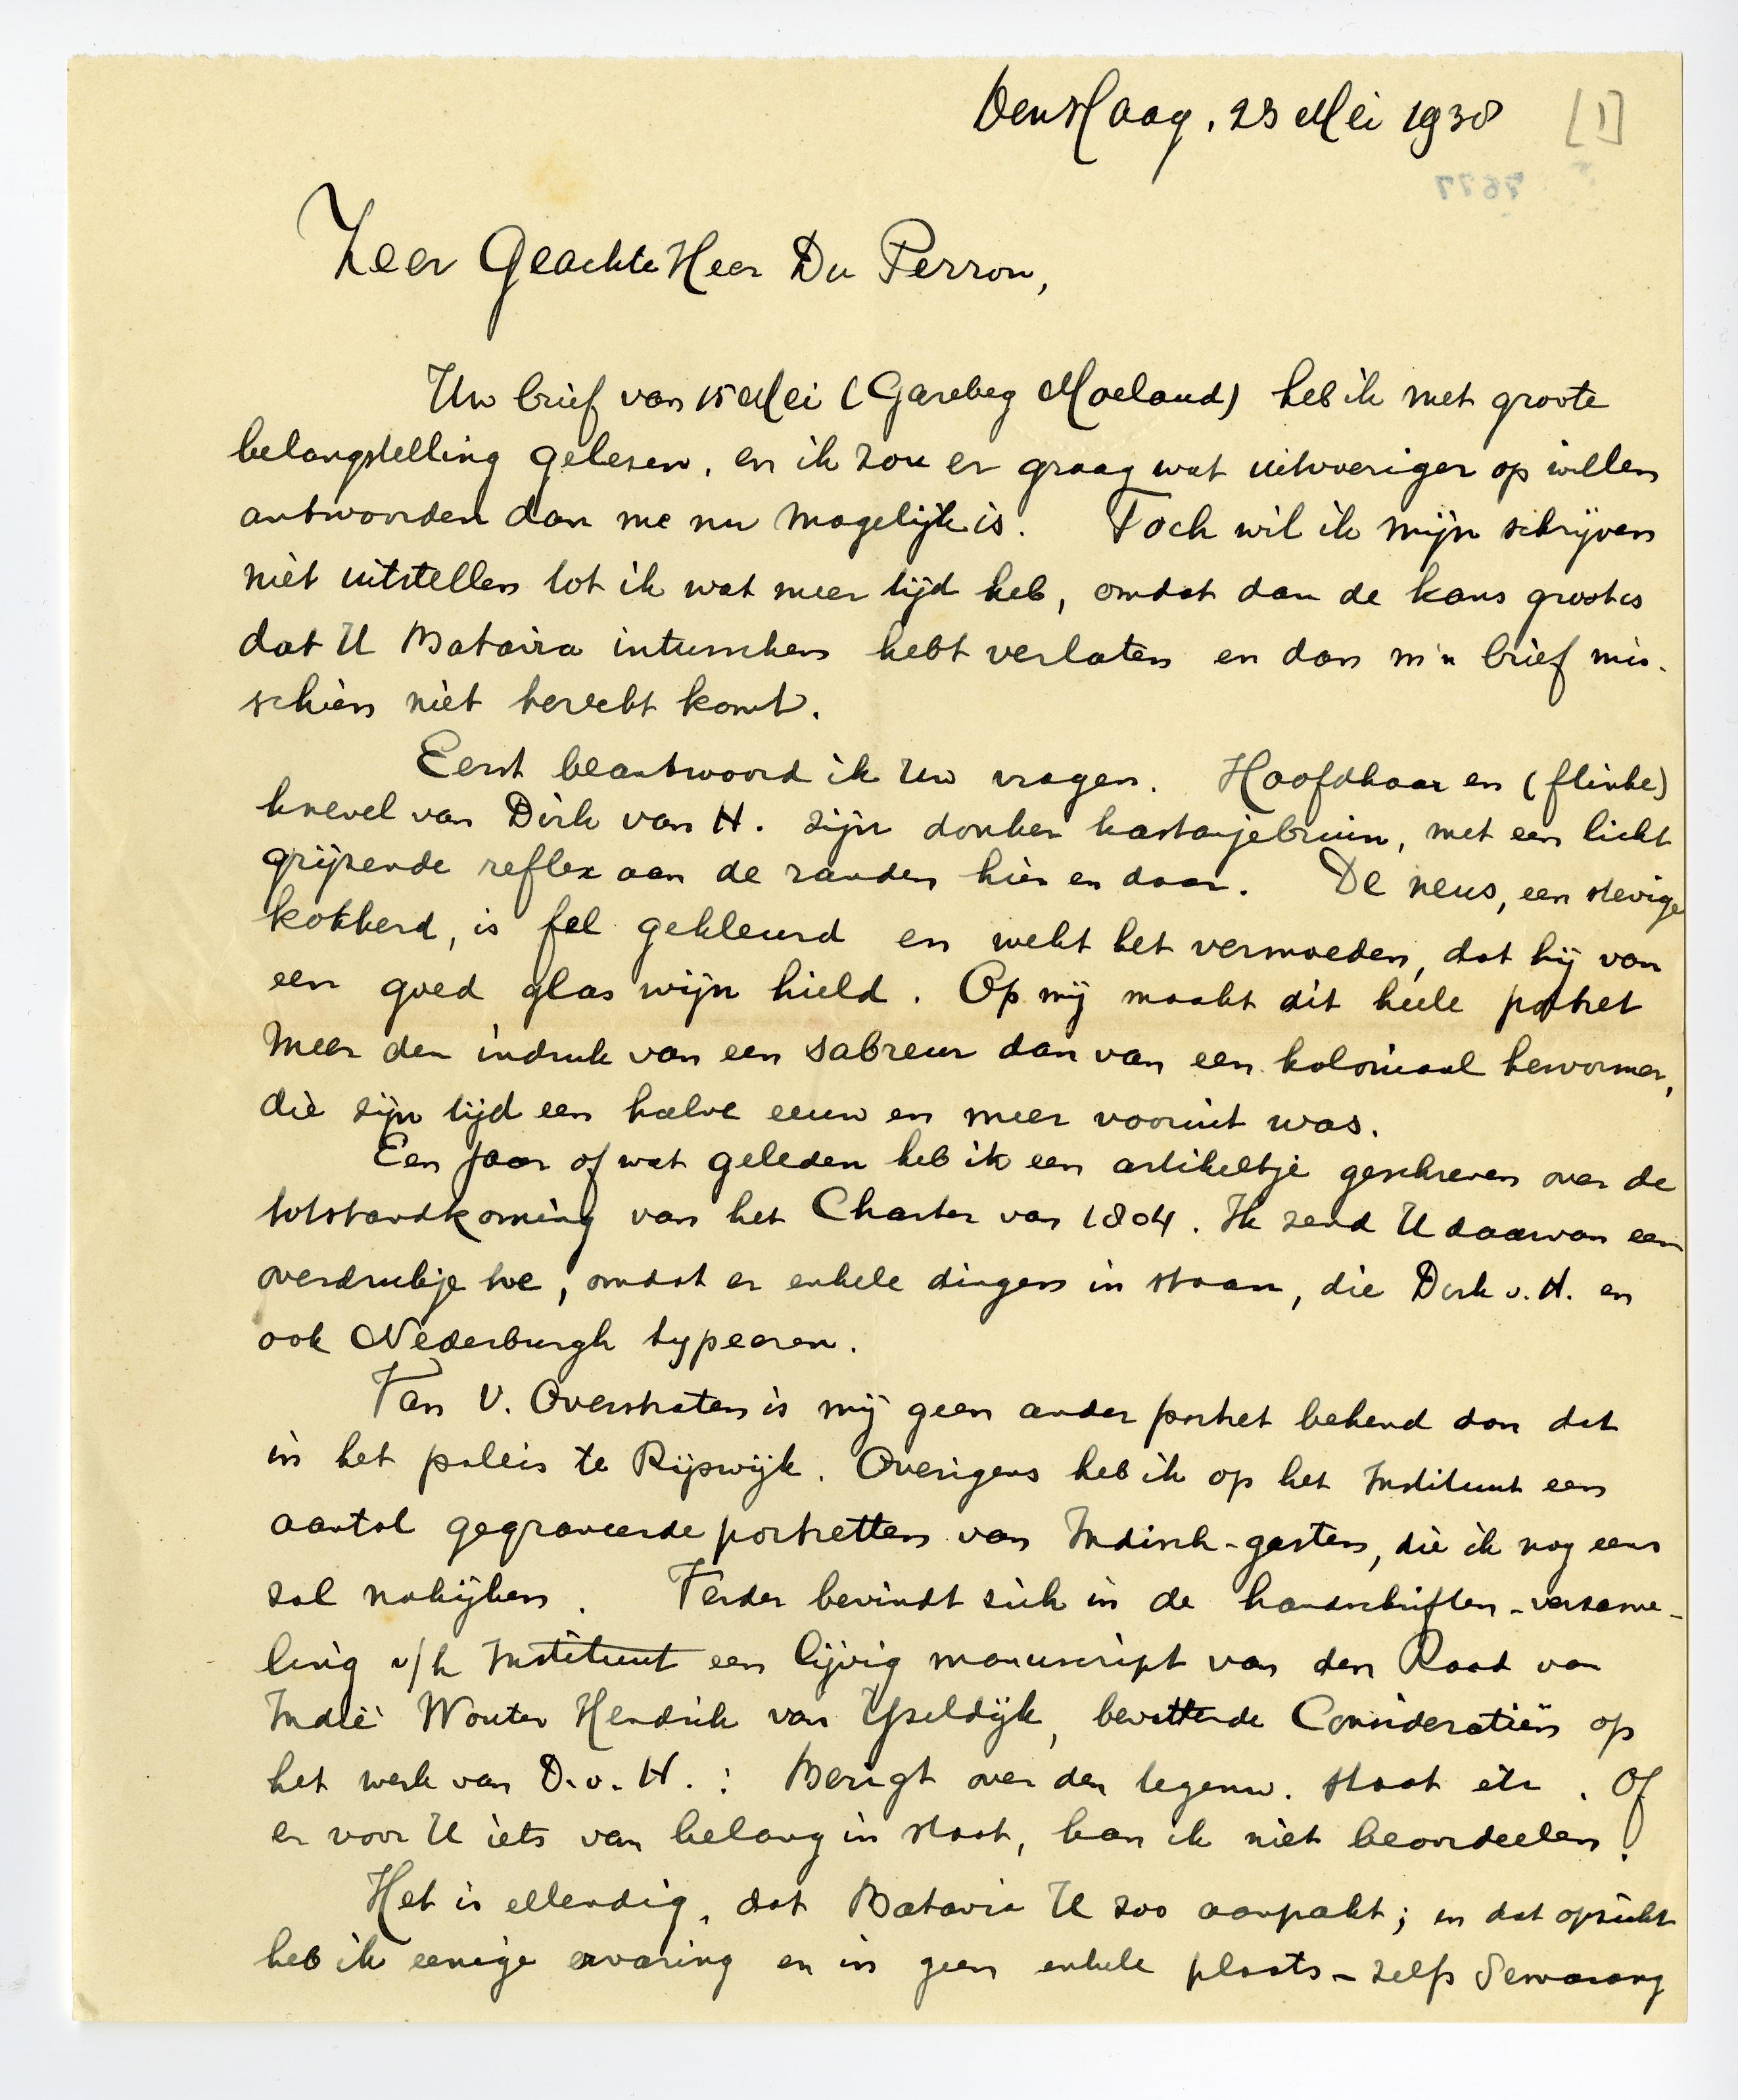 Den Haag, 23 Mei 1938 [1]
7677
Zeer Geachte Heer Du Perron,
Uw brief van 15 Mei (Garebeg Moeloud) heb ik met groote
belangstelling gelezen, en ik zou er graag wat uitvoeriger op willen
antwoorden dan me nu mogelijk is. Toch wil ik mijn schrijven
niet uitstellen tot ik wat meer tijd heb, omdat dan de kans groot is
dat U Batavia intusschen hebt verlaten en dan m'n brief mis-
schien niet terecht komt.
Eerst beantwoord ik Uw vragen. Hoofdhaar en (flinke)
knevel van Dirk van H. zijn donker kastanjebruin, met een licht
grijzende reflex aan de randen hier en daar. De neus, een stevige
kokkerd, is fel gekleurd en wekt het vermoeden, dat hij van
een goed glas wijn hield. Op mij maakt dit heele portret
meer den indruk van een sabreur dan van een koloniaal hervormer,
die zijn tijd een halve eeuw en meer vooruit was.
Een jaar of wat geleden heb ik een artikeltje geschreven over de
totstandkoming van het Charter van 1804. Ik zend U daarvan een
overdrukje toe, omdat er enkele dingen in staan, die Dirk v. H. en
ook Nederburgh typeeren.
Van V. Overstraten is mij geen ander portret bekend dan dat
in het paleis te Rijswijk. Overigens heb ik op het Instituut een
aantal gegraveerde portretten van Indisch-gasten, die ik nog eens
zal nakijken. Verder bevindt zich in de handschriften-verzame-
ling v/h Instituut een lijvig manuscript van den Raad van
Indië Wouter Hendrik van Yseldijk, bevattende Consideratiën op
het werk van D. v. H. : Berigt over den tegenw. staat etc. Of
er voor U iets van belang in staat, kan ik niet beoordeelen.
Het is ellendig, dat Batavia U zoo aanpakt; in dat opzicht
heb ik eenige ervaring en in geen enkele plaats - zelfs Semarang